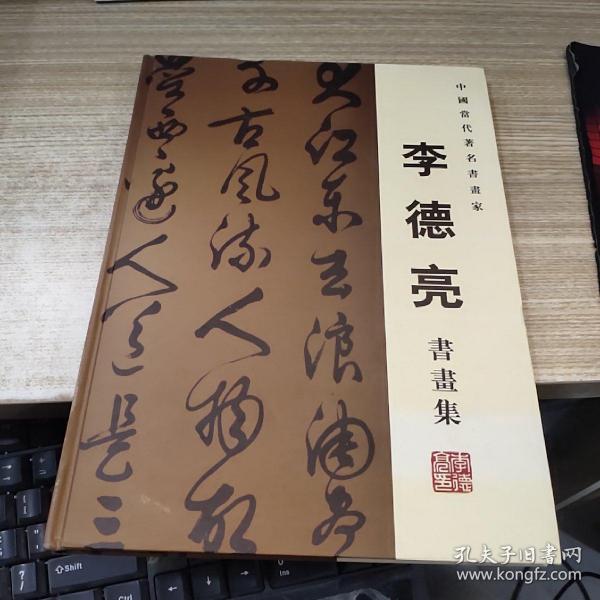 中國當代著名書畫家
李德亮
書畫集
李德亮印
大江东去浪淘尽
千古风流人物故
垒西边人道是三
Shift
Ctrl
0
Ins
孔夫子旧书网
www.kongfz.com